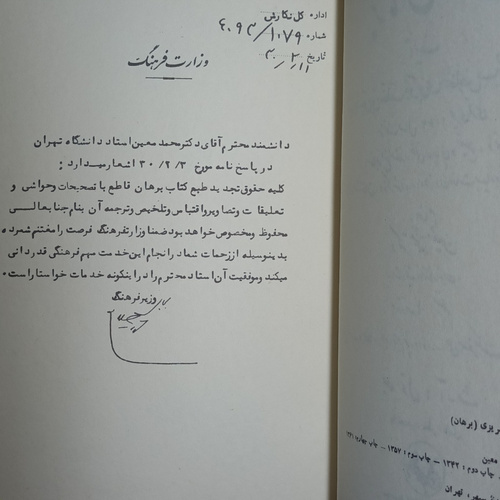 اداره کل نگارش
شماره ۶۰۹۳/۱۰۷۹
تاریخ ۳۰/۲/۱۱
وزارت فرهنگ
دانشمند محترم آقای دکتر محمد معین استاد دانشگاه تهران
در پاسخ نامه مورخ ۳۰/۲/۳ اشعار میدارد:
کلیه حقوق تجدید طبع کتاب برهان قاطع با تصحیحات و حواشی و
تعلیقات و تصاویر و اقتباس و تلخیص و ترجمه آن بنام جنابعالی
محفوظ و مخصوص خواهد بود ضمنا وزارت فرهنگ فرصت را مغتنم شمرده
بدینوسیله از زحمات شما در انجام این خدمت مهم فرهنگی قدردانی
میکند و موفقیت آن استاد محترم را در اینگونه خدمات خواستار است.
وزیر فرهنگ
ریزی (برهان)
معین
چاپ دوم: ۱۳۴۲ – چاپ سوم: ۱۳۵۷ – چاپ چهارم:
تهران